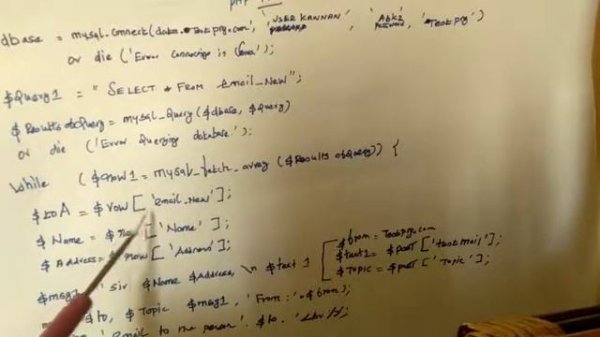 php
dbase = mysql_connect(data.Testprg.com, 'USER KANNAN', 'Abk2', 'Testprg')
or die ('Error Connecting is
$Query1 = "SELECT * FROM email_New";
$ResultsofQuery = mysql_Query($dbase, $Query)
or die ('Error Querying database');
While ($row1 = mysql_fetch_array ($ResultsofQuery)) {
$toA = $row ['email_New'];
$Name = ['Name'];
$Address = $row ['Address'];
$from = Testprg.com
$text1 = $post ['textmail'];
$Topic = $post ['Topic'];
$msg1 'sir $Name $Address, \n $text 1
$to, $Topic $msg1, 'From:'.$from);
'Email to the person'. $to.